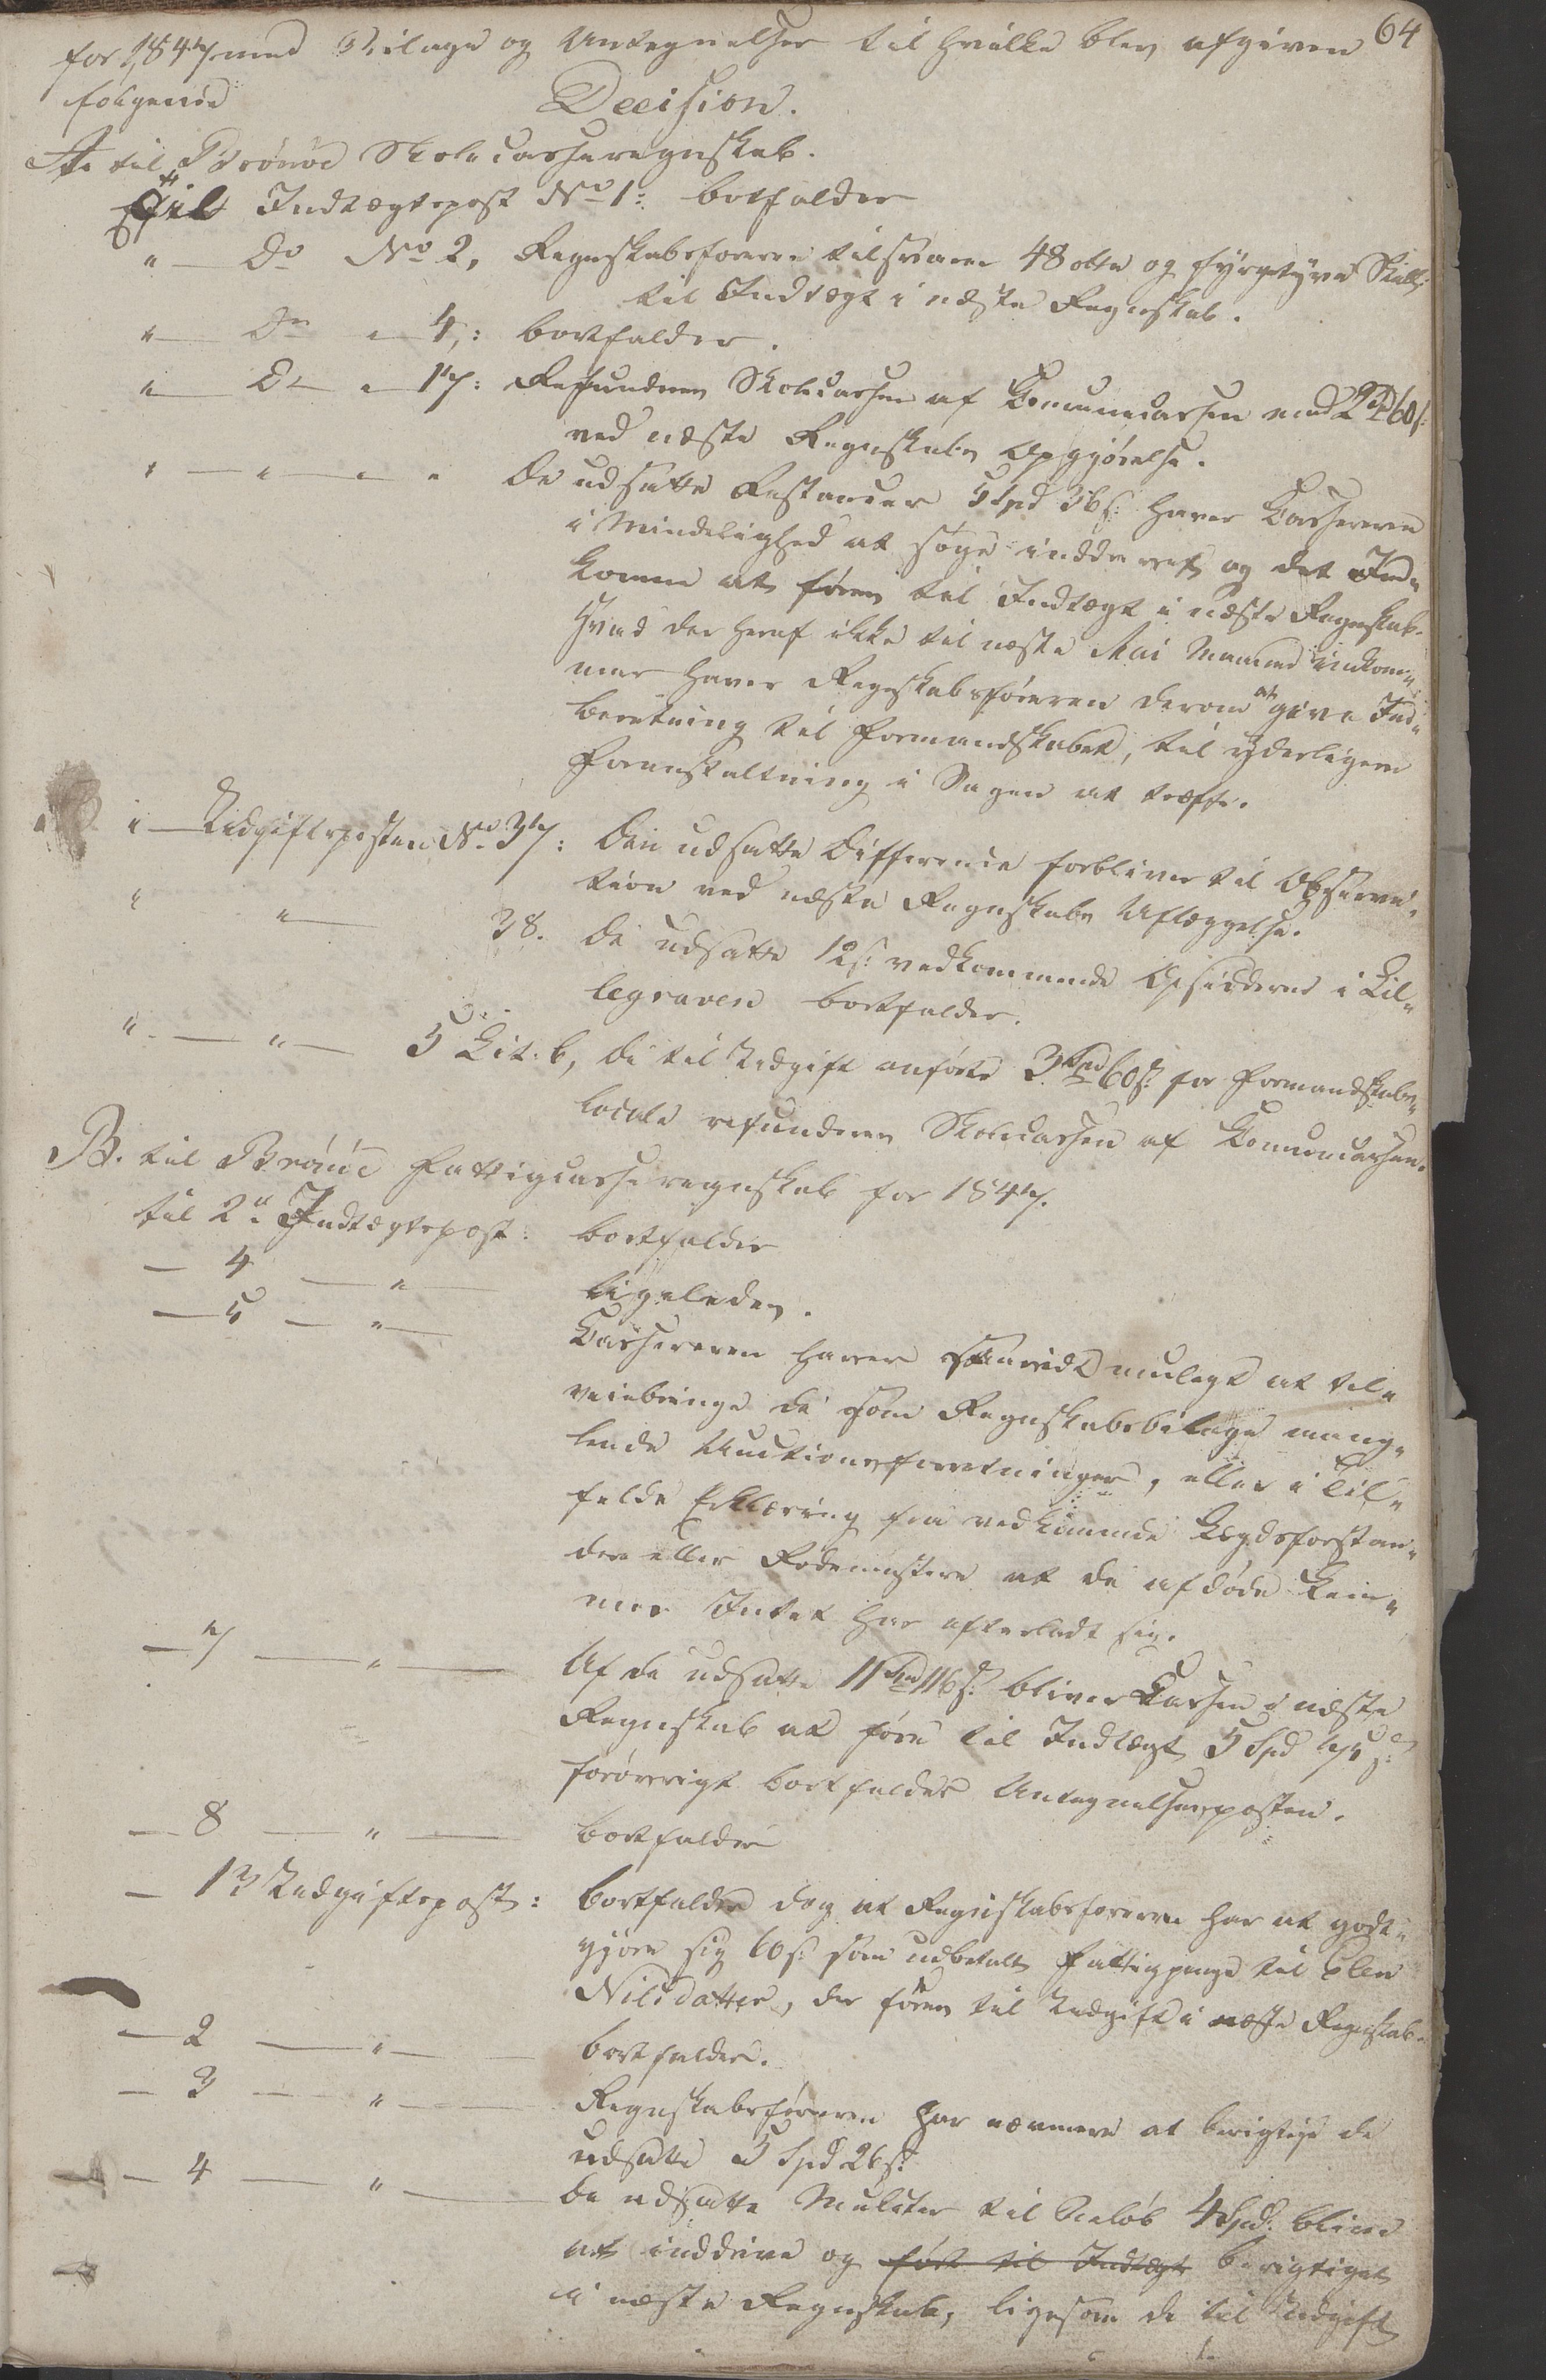 64
for 1847 med Bilage og Antegnelser til hvilke blev afgiven
følgende Decision.
A. til Brönöe Skolecasseregnskab.
Til Indtægtspost No 1: bortfalder
" — Do No 2, Regnskabsføreren tilsvarer 48 otte og fyrgetyve Skill:
til Indtægt i næste Regnskab.
" — Do " 4,: bortfalder.
" — Do " 17: Refunderes Skolecassen af Communecassen med 2 Spd 60 s:
ved næste Regnskabs Opgjørelse.
" — " — " " De udsatte Restancer 5 Spd 36 s: haver Cassereren
i Mindelighed at søge inddrevet og det Ind-
komne at føres til Indtægt i næste Regnskab.
Hvad der heraf ikke til næste Mai Maaned indkom-
mer haver Regnskabsføreren derom at give Ind-
beretning til Formandskabet, til yderligere
Foranstaltning i Sagen at træffe.
" — Udgiftsposten No 37: Den udsatte Difference forbliver til Observa-
tion ved næste Regnskabs Aflæggelse.
" " — 38. De udsatte 12 s: vedkommende Opsidderne i Lil-
legraven bortfalder.
" — " — 5 Lit. b, de til Udgift anførte 3 Spd 60 s: for Formandskabs-
locale refunderes Skolecassen af Communecassen.
B. til Brönöe Fattigcasseregnskab for 1847.
til 2en Indtægtspost: bortfalder
— 4 — " — ligeledes.
— 5 — " — Cassereren haver saavidt muligt at til-
veiebringe de som Regnskabsbilage mang-
lende Auctionsforretninger, eller i Til-
felde Erklæring fra vedkommende Lægdsforstan-
der eller Rodemestere at de afdøde Lem-
mer Intet har efterladt sig.
— 7 — " — Af de udsatte 11 Spd 116 s: bliver Cassen i næste
Regnskab at føre til Indtægt 5 Spd 75 s:
forøvrigt bortfalder Antegnelsesposten.
— 8 — " — bortfalder
— 1ste Udgiftspost: bortfalder dog at Regnskabsføreren har at godt-
gjøre sig 60 s: som udbetalt Fattigpenge til Elen
Nilsdatter, der føres til Udgift i næste Regnskab.
— 2 — " — bortfalder.
— 3 — " — Regnskabsføreren har nærmere at berigtige de
udsatte 5 Spd 26 s:
— 4 — " — De udsatte Mulcter til Beløb 4 Spd: blive
at inddrive og ført til Indtægt berigtiget
i næste Regnskab, ligesom de til Udgift